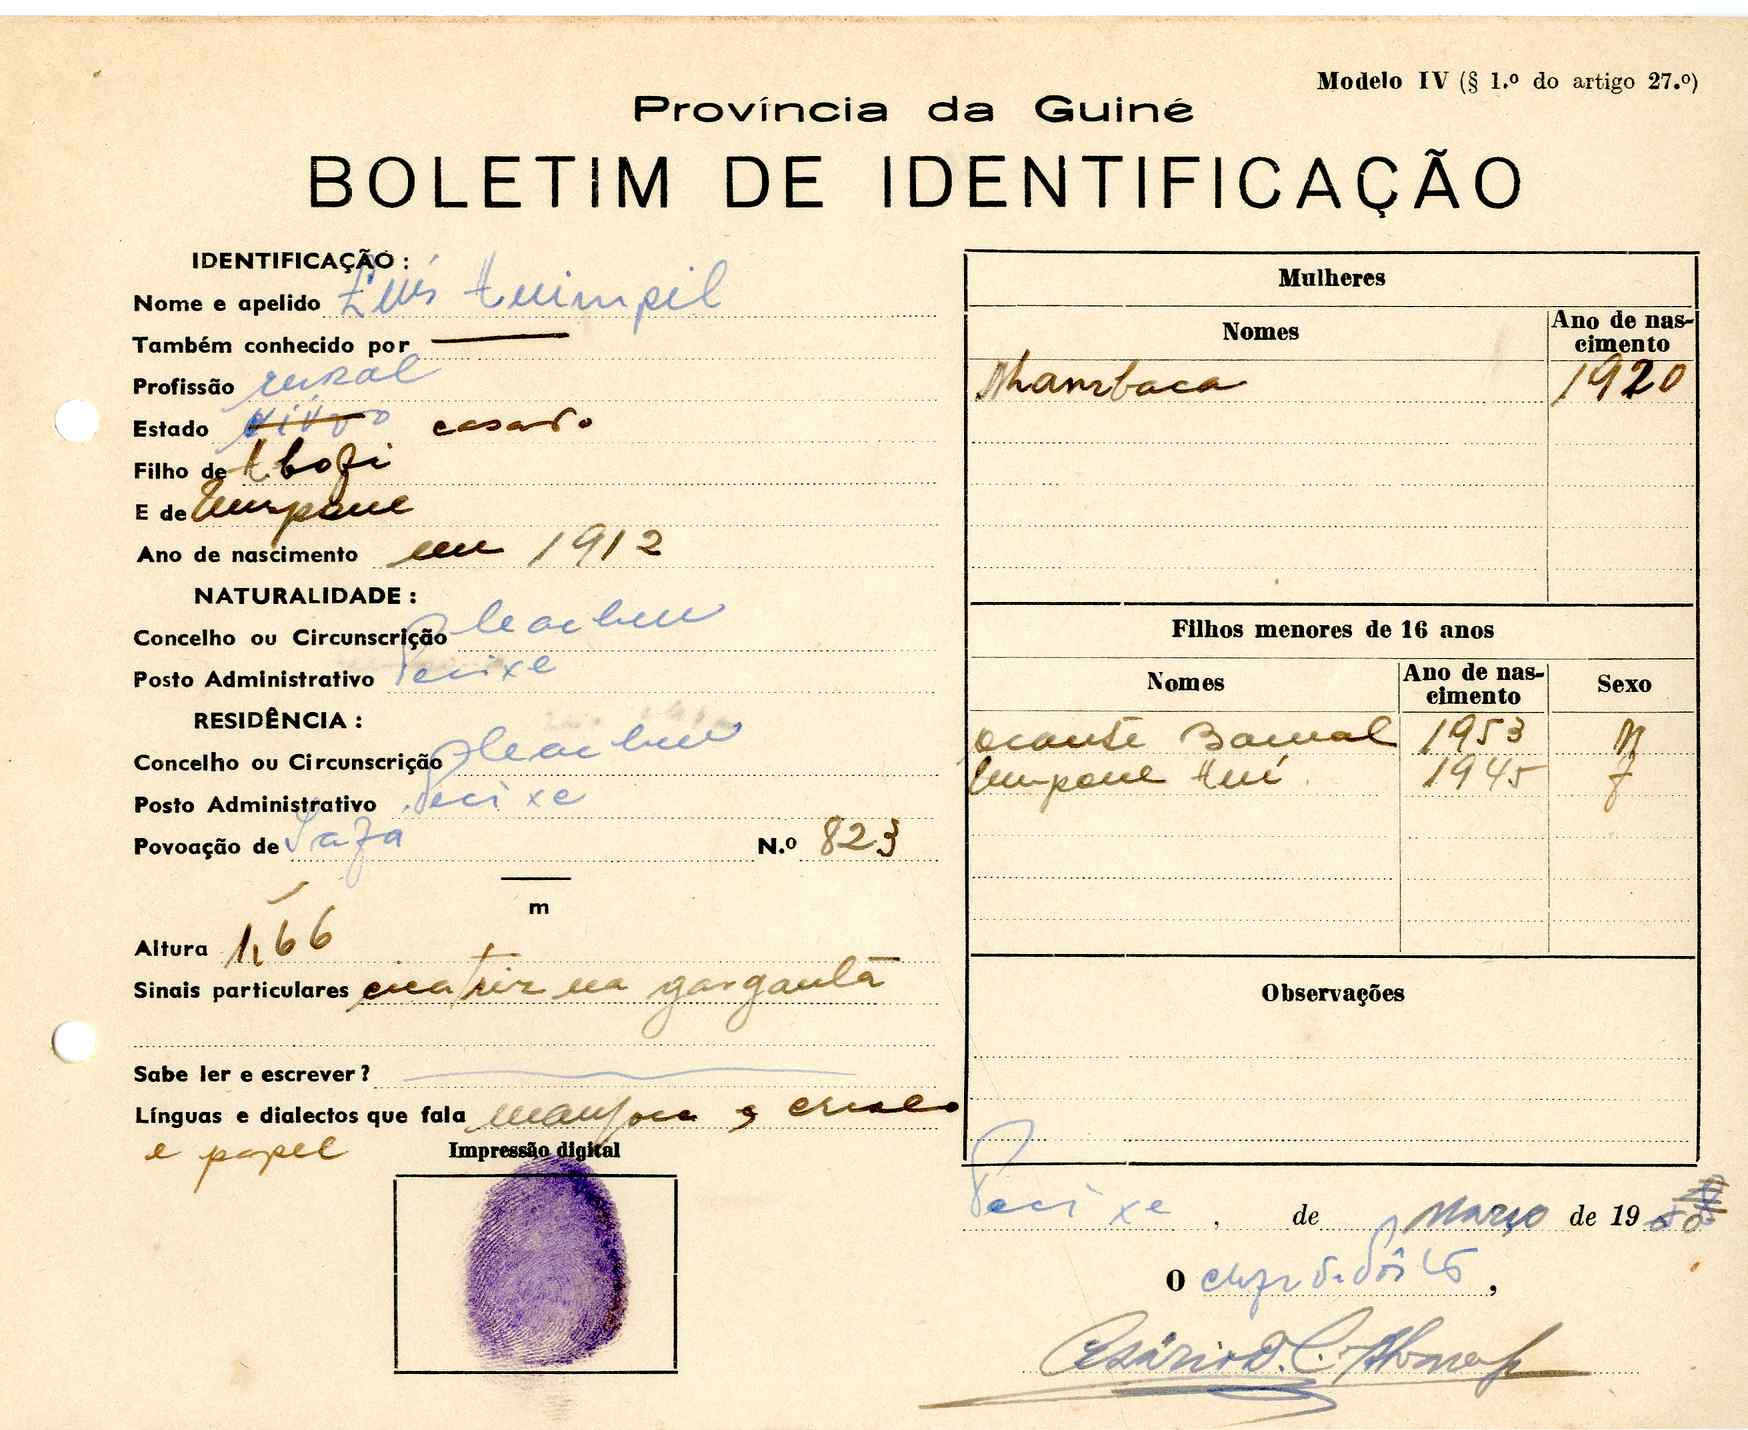 Modelo IV (§ 1.º do artigo 27.º)
Província da Guiné
BOLETIM DE IDENTIFICAÇÃO
IDENTIFICAÇÃO :
Nome e apelido Luís
Também conhecido por —
Profissão rural
Estado viúvo casado
Filho de
E de
Ano de nascimento em 1912
NATURALIDADE :
Concelho ou Circunscrição
Posto Administrativo Pecixe
RESIDÊNCIA :
Concelho ou Circunscrição
Posto Administrativo Pecixe
Povoação de N.º 823
m
Altura 1,66
Sinais particulares cicatriz na garganta
Sabe ler e escrever ?
Línguas e dialectos que fala manjaca e crioulo
e papel
Impressão digital
Mulheres
Nomes Ano de nascimento
Nhambaca 1920
Filhos menores de 16 anos
Nomes Ano de nascimento Sexo
1953 M
1945 F
Observações
Pecixe , de Março de 19
O chefe de Pôsto,